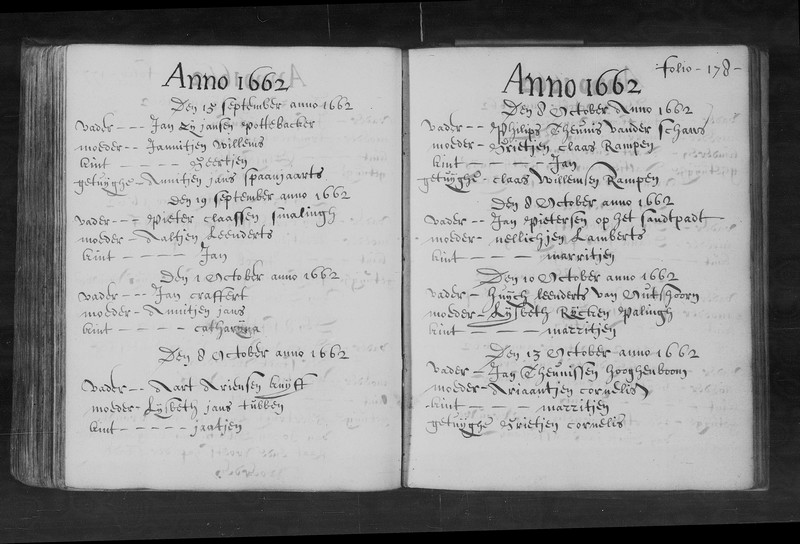 Anno 1662
Den 15 september anno 1662
vader - - - Jan Jansen Pottebacker
moeder - - Jannitjen Willems
kint - - - - - Geertjen
getuijghe - Annitjen jans spaanjaarts
Den 19 september anno 1662
vader - - - Pieter claassen smalingh
moeder - Aaltjen Leenderts
kint - - - - - Jan
Den 1 October anno 1662
vader - - - Jan craffert
moeder - Annitjen jans
kint - - - - - catharyna
Den 8 October anno 1662
vader - - Aart Ariensen kuyff
moeder - Lysbeth jans tubben
kint - - - - - jaatjen
folio - 178 -
Anno 1662
Den 8 October Anno 1662
vader - - Philips Theunis vander schans
moeder - Grietjen claas Rampen
kint - - - - - Jan
getuyghe - claas Willemsen Rampen
Den 8 October anno 1662
vader - - Jan Pietersen op het santpadt
moeder - nellichjen Lamberts
kint - - - - - marritjen
Den 10 October anno 1662
vader - huych leenderts van Outshoorn
moeder - Lysbeth Palingh
kint - - - - - marritjen
Den 13 October anno 1662
vader - Jan Theunissen hooghenboom
moeder - Ariaantjen cornelis
kint - - - - marritjen
getuyghe Grietjen cornelis